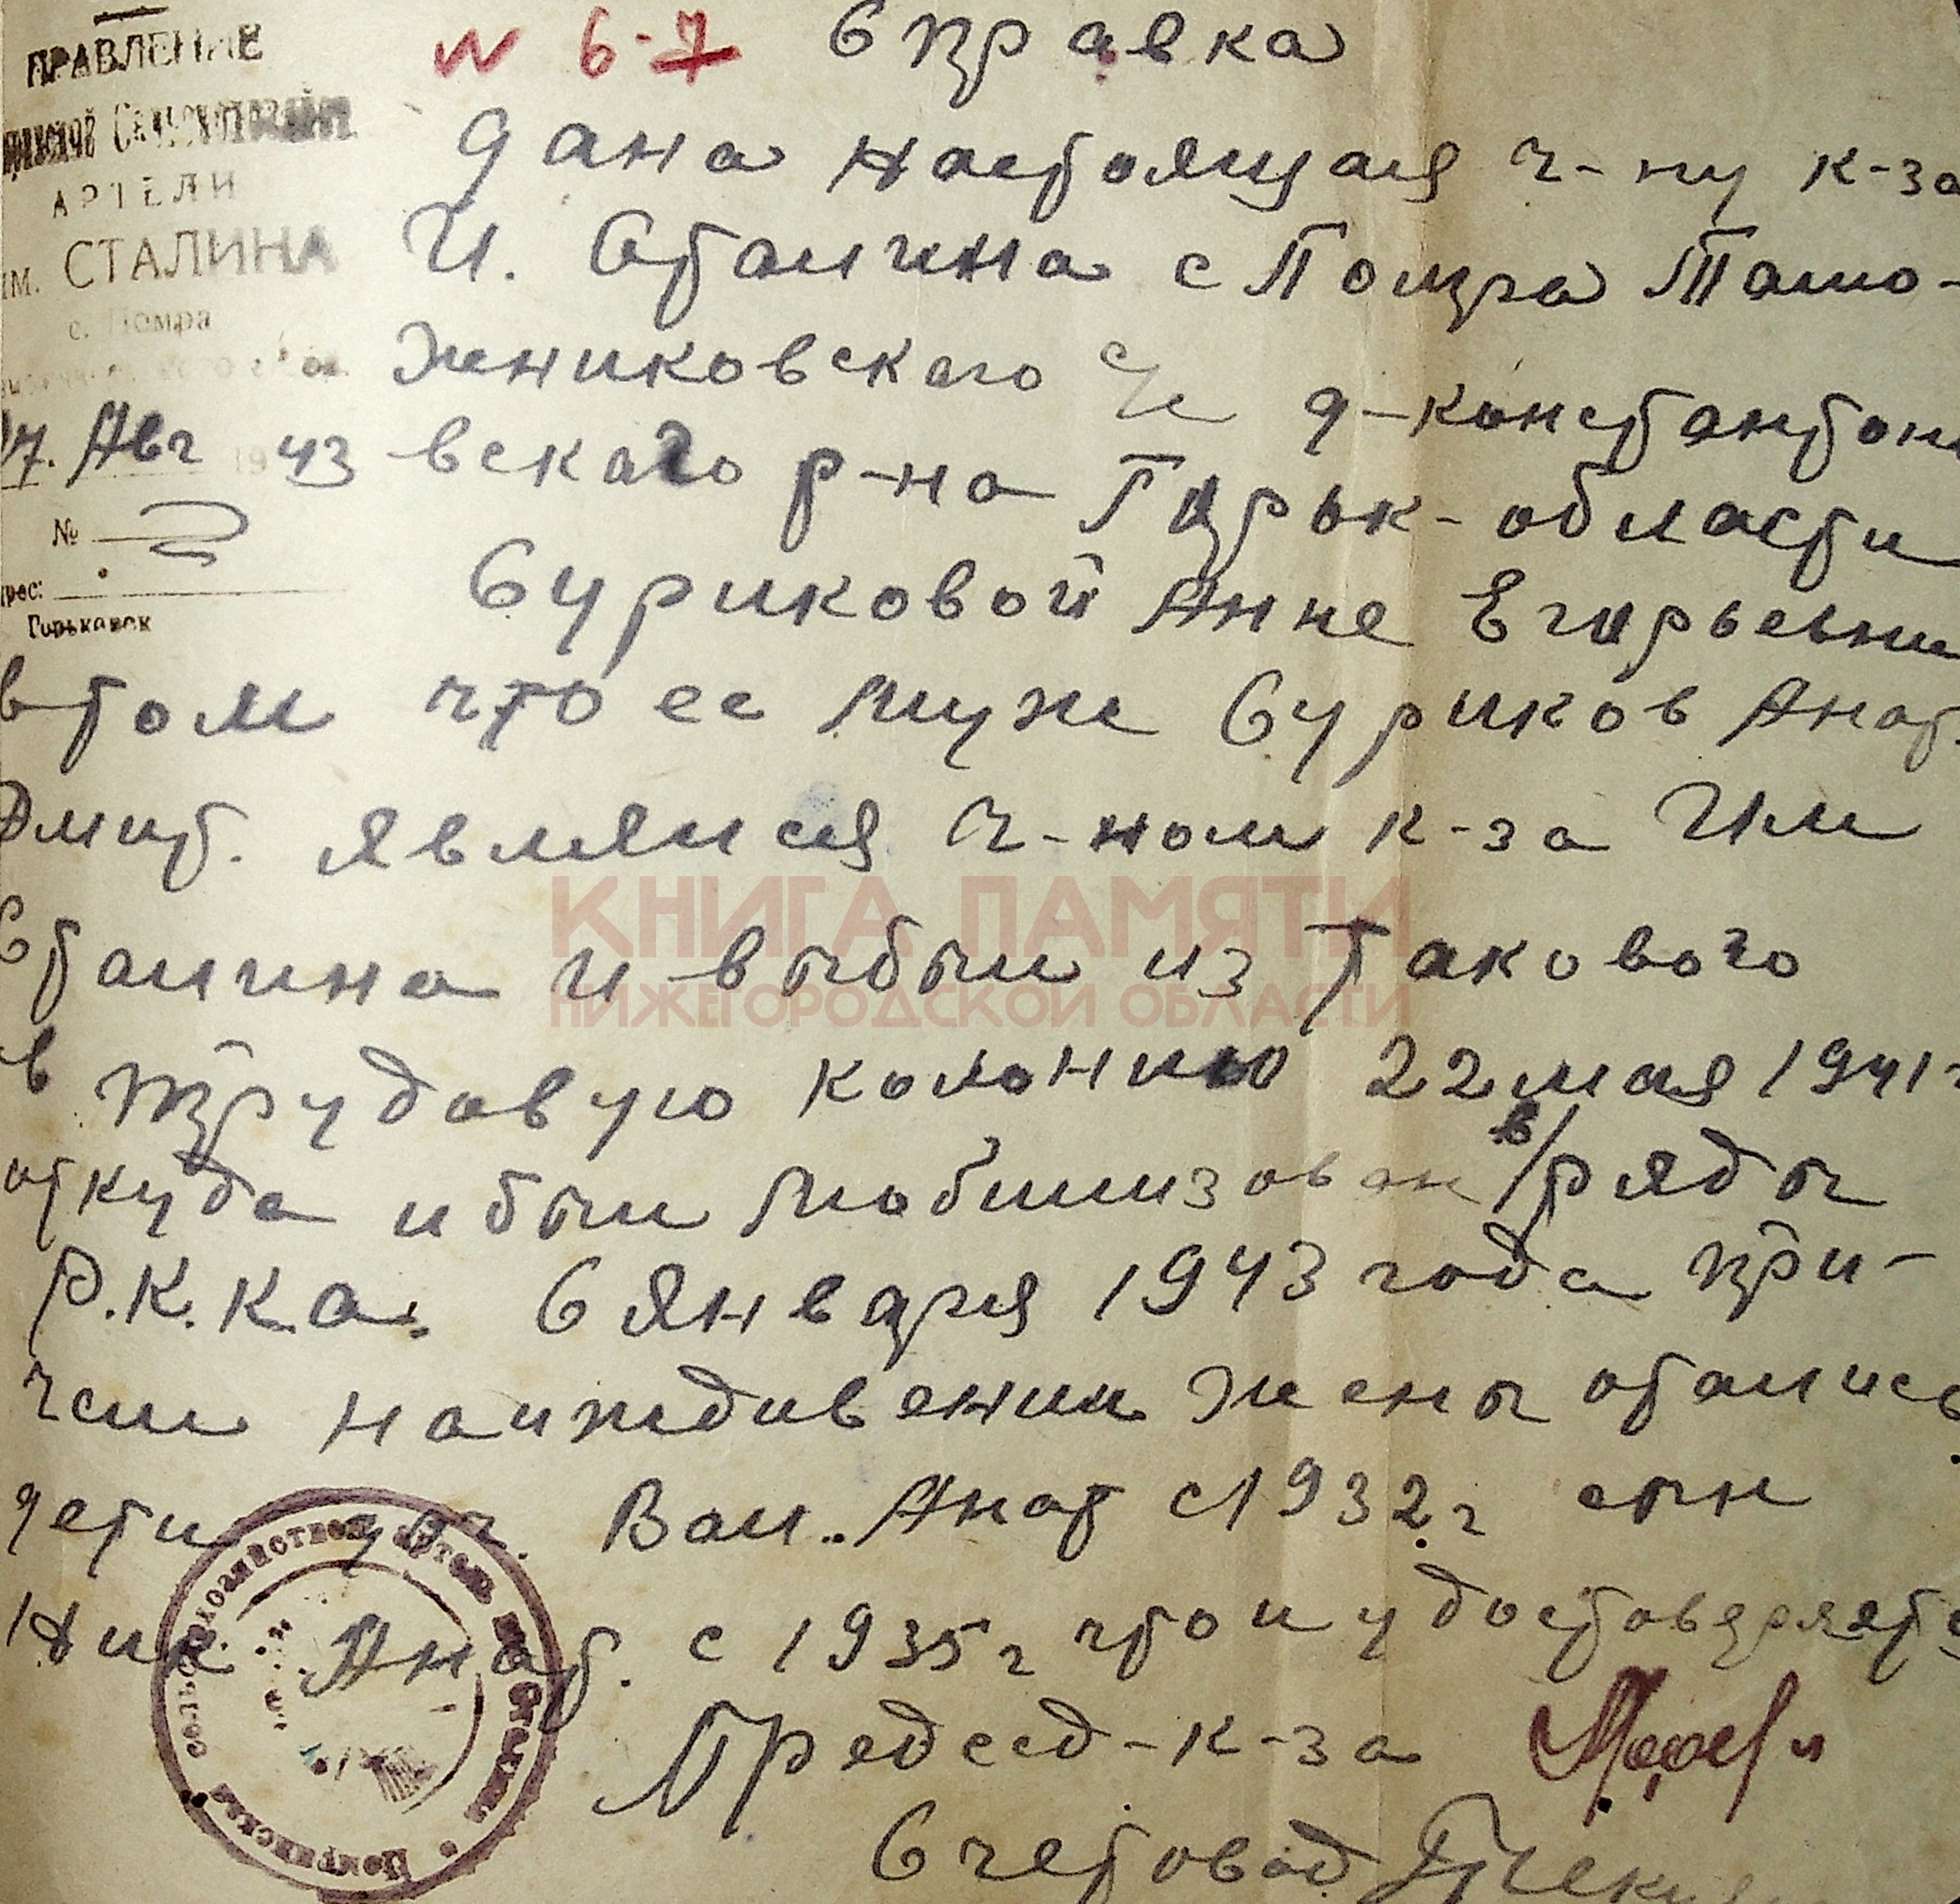 ПРАВЛЕНИЕ
АРТЕЛИ
им. СТАЛИНА
с. Помра
17. Авг 19 43
№
Адрес:
Горьковск
N 6-7 Справка
дана настоящая ч-ну к-за
И. Сталина с Помра Тамо-
жниковского с/с д-константон
вского р-на Горьк- области
Суриковой Анне Егорьевни
в том что ее муж Суриков Анат.
Дмит. являлся ч-ном к-за Им
Сталина и выбыл из такового
в трудовую колонию 22 мая 1941г
откуда и был мобилизован в/ ряды
Р.К.К.А. 6 января 1943 года при-
чем наиждивении жены остались
дети доч. Вал.. Анат с 1932 г сын
Ник Анат. с 1935 г что и удостоверяется
Председ-к-за
Счетовод
КНИГА ПАМЯТИ
НИЖЕГОРОДСКОЙ ОБЛАСТИ